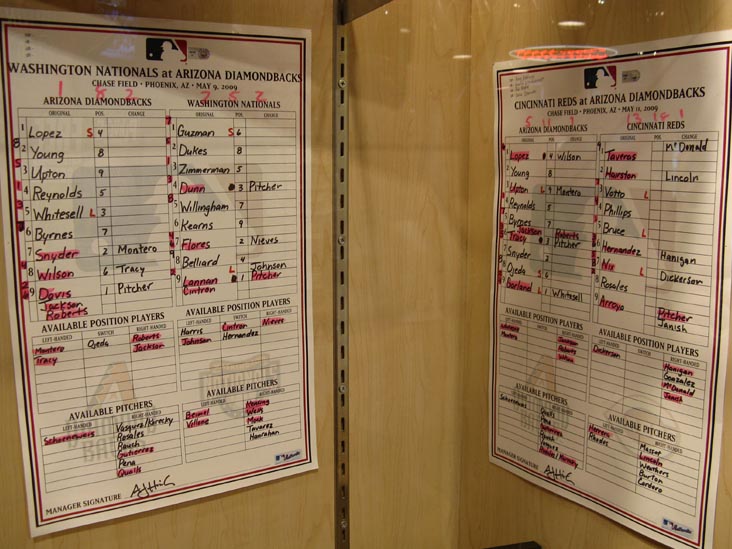 WASHINGTON NATIONALS at ARIZONA DIAMONDBACKS
CHASE FIELD • PHOENIX, AZ • MAY 9, 2009
ARIZONA DIAMONDBACKS WASHINGTON NATIONALS
ORIGINAL POS. CHANGE ORIGINAL POS. CHANGE
1 Lopez S 4 1 Guzman S 6
2 Young 8 2 Dukes 8
3 Upton 9 3 Zimmerman 5
4 Reynolds 5 4 Dunn 3 Pitcher
5 Whitesell L 3 5 Willingham 7
6 Byrnes 7 6 Kearns 9
7 Snyder 2 Montero 7 Flores 2 Nieves
8 Wilson 6 Tracy 8 Belliard 4 Johnson
9 Davis 1 Pitcher 9 Lannan L 1 Pitcher
Jackson Cintron
Roberts
AVAILABLE POSITION PLAYERS AVAILABLE POSITION PLAYERS
LEFT-HANDED SWITCH RIGHT-HANDED LEFT-HANDED SWITCH RIGHT-HANDED
Montero Ojeda Roberts Harris Cintron Nieves
Tracy Jackson Johnson Hernandez
AVAILABLE PITCHERS AVAILABLE PITCHERS
LEFT-HANDED RIGHT-HANDED LEFT-HANDED RIGHT-HANDED
Schoeneweis Vasquez/Korecky Beimel
Rosales Villone Wells
Rauch Mock
Gutierrez Tavarez
Pena Hanrahan
Qualls
MANAGER SIGNATURE
CINCINNATI REDS at ARIZONA DIAMONDBACKS
CHASE FIELD • PHOENIX, AZ • MAY 11, 2009
ARIZONA DIAMONDBACKS CINCINNATI REDS
ORIGINAL POS. CHANGE ORIGINAL POS. CHANGE
1 Lopez 4 Wilson Taveras McDonald
2 Young 8 Hairston Lincoln
3 Upton L 9 Montero Votto L
4 Reynolds 5 Phillips
5 Byrnes 7 Roberts Bruce L
Jackson
6 Tracy 3 Pitcher Hernandez Hanigan
7 Snyder 2 Nix L Dickerson
8 Ojeda S 6 Rosales
9 Garland L 1 Whitesell Arroyo Pitcher
Janish
AVAILABLE POSITION PLAYERS AVAILABLE POSITION PLAYERS
LEFT-HANDED SWITCH RIGHT-HANDED LEFT-HANDED SWITCH RIGHT-HANDED
Whitesell Jackson Dickerson Hanigan
Montero Roberts Gonzalez
Wilson McDonald
Janish
AVAILABLE PITCHERS AVAILABLE PITCHERS
LEFT-HANDED RIGHT-HANDED LEFT-HANDED RIGHT-HANDED
Schoeneweis Qualls Herrera Masset
Pena Rhodes Lincoln
Gutierrez Weathers
Rauch Burton
Vasquez Cordero
MANAGER SIGNATURE